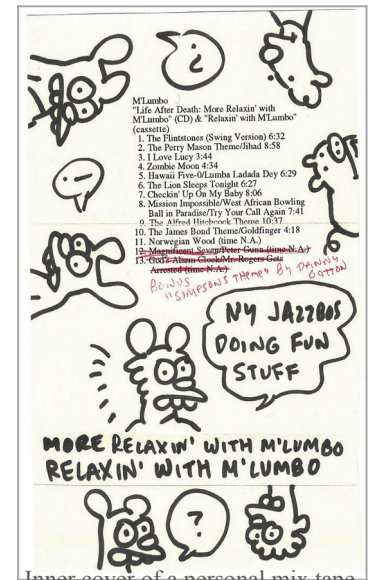 M'Lumbo
"Life After Death: More Relaxin' with
M'Lumbo" (CD) & "Relaxin' with M'Lumbo"
(cassette)
1. The Flintstones (Swing Version) 6:32
2. The Perry Mason Theme/Jihad 8:58
3. I Love Lucy 3:44
4. Zombie Moon 4:34
5. Hawaii Five-0/Lumba Ladada Dey 6:29
6. The Lion Sleeps Tonight 6:27
7. Checkin' Up On My Baby 8:06
8. Mission Impossible/West African Bowling
Ball in Paradise/Try Your Call Again 7:41
9. The Alfred Hitchcock Theme 10:37
10. The James Bond Theme/Goldfinger 4:18
11. Norwegian Wood (time N.A.)
12. Magnificent Seven/Peter Gunn (time N.A.)
13. God's Alarm Clock/Mr. Rogers Gets
Arrested (time N.A.)
BONUS
"SIMPSONS THEME" BY DANNY
GATTON
NY JAZZBOS
DOING FUN
STUFF
MORE RELAXIN' WITH M'LUMBO
RELAXIN' WITH M'LUMBO
?
Inner cover of a personal mix tape